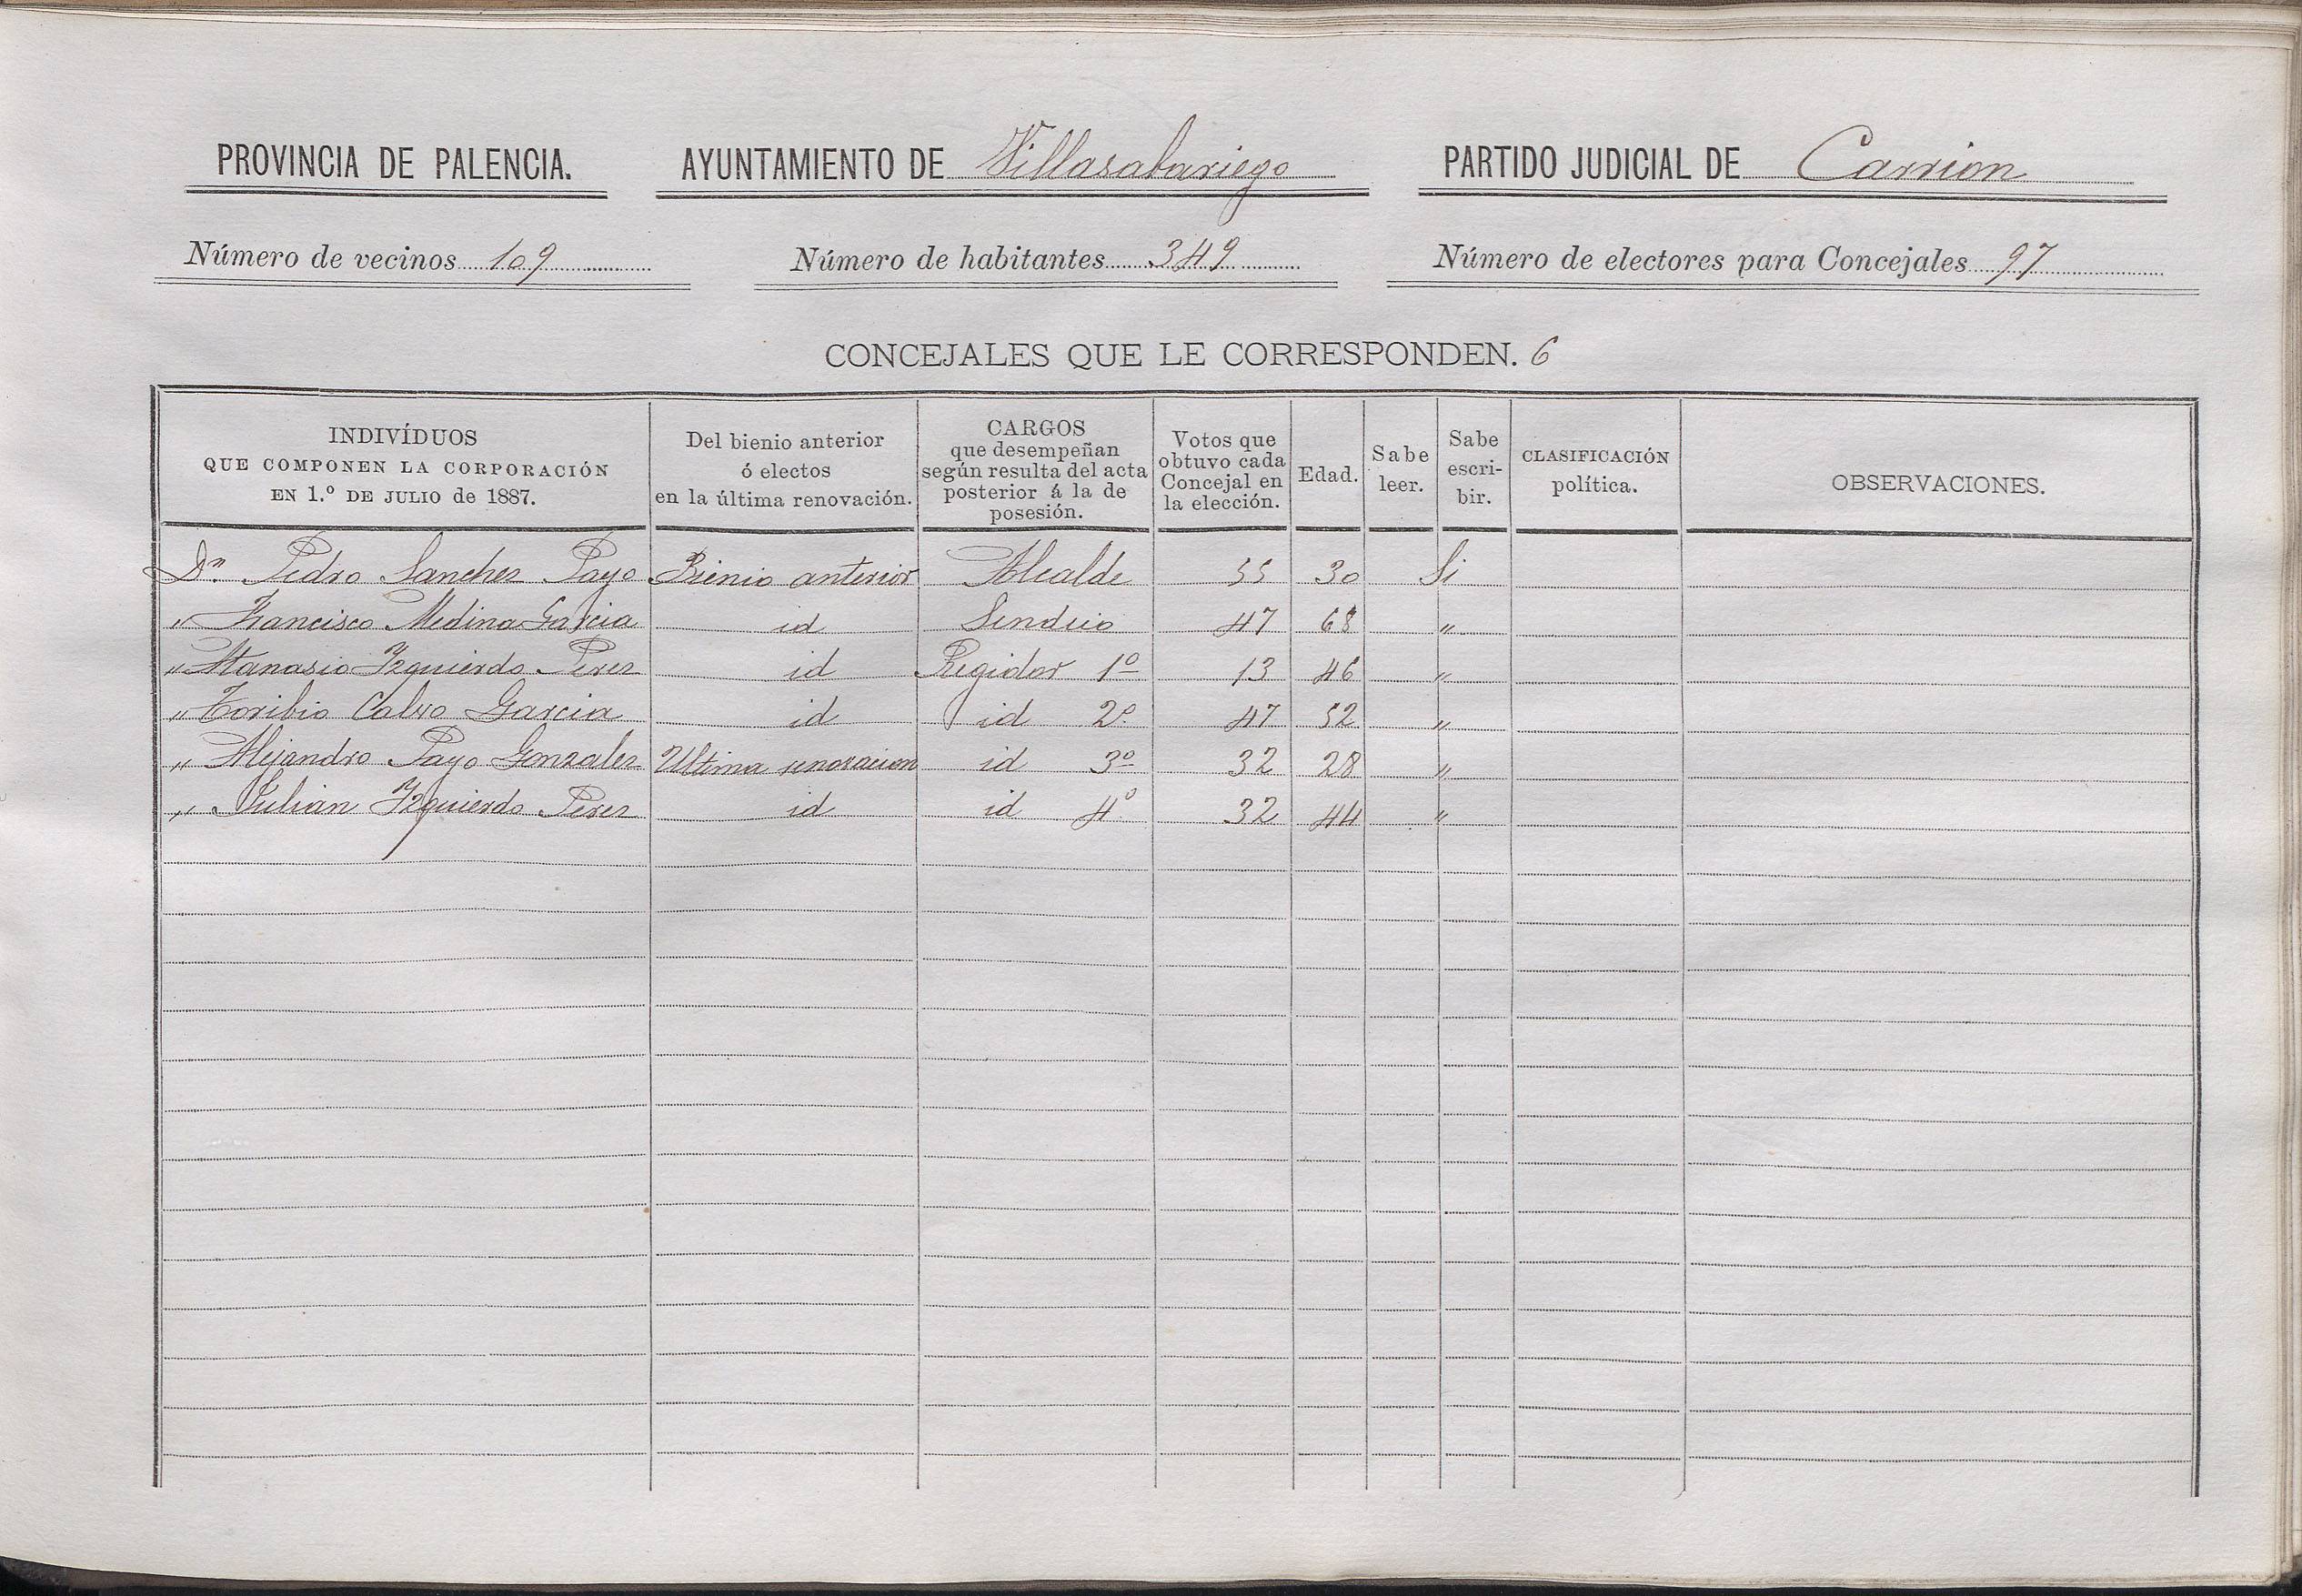 PROVINCIA DE PALENCIA. AYUNTAMIENTO DE Villasabariego PARTIDO JUDICIAL DE Carrion
Número de vecinos 109 Número de habitantes 349 Número de electores para Concejales 97
CONCEJALES QUE LE CORRESPONDEN. 6
INDIVÍDUOS
QUE COMPONEN LA CORPORACIÓN
EN 1.º DE JULIO de 1887.
Del bienio anterior
ó electos
en la última renovación.
CARGOS
que desempeñan
según resulta del acta
posterior á la de
posesión.
Votos que
obtuvo cada
Concejal en
la elección.
Edad.
Sabe
leer.
Sabe
escri-
bir.
CLASIFICACIÓN
política.
OBSERVACIONES.
Dn Pedro Sanchez Payo Bienio anterior Alcalde 55 30 Si
" Francisco Medina Garcia id Sindico 47 68 "
" Atanasio Izquierdo Perez id Regidor 1º 13 46 "
" Toribio Calvo Garcia id id 2º 47 52 "
" Alejandro Payo Gonzalez Ultima renovacion id 3º 32 28 "
" Julian Izquierdo Perez id id 4º 32 44 "